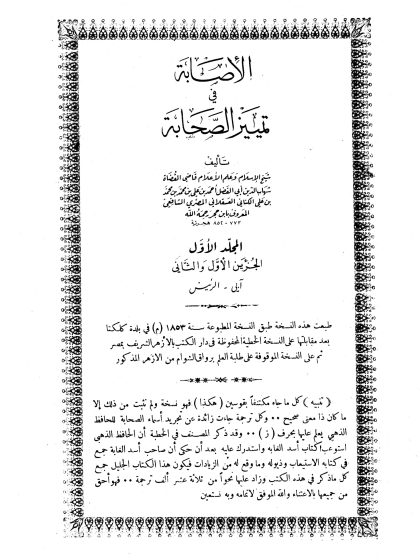 الأصابة
في
تمييز الصحابة
تأليف
شيخ الإسلام وعلم الأعلام قاضي القضاة
شهاب الدين أبي الفضل أحمد بن علي بن محمد بن محمد
بن علي الكناني العسقلاني المصري الشافعي
المعروف بابن حجر رحمه الله
٧٧٣-٨٥٢ هجرية
المجلد الأول
الجزءين الأول والثاني
آبي - الرئيس
طبعت هذه النسخة طبق النسخة المطبوعة سنة ١٨٥٣ (م) في بلدة كلكتا
بعد مقابلتها على النسخة الخطية المحفوظة في دار الكتب بالأزهر الشريف بمصر
ثم على النسخة الموقوفة على طلبة العلم برواق الشوام من الازهر المذكور
(تنبيه) كل ما جاء مكتنفاً بقوسين (هكذا) فهو نسخة ولم نثبت من ذلك إلا
ما كان ذا معنى صحيح ٠٠ وكل ترجمة جاءت زائدة عن تجريد أسماء الصحابة للحافظ
الذهبي يعلم عليها بحرف (ز) ٠٠ وقد ذكر المصنف في الخطبة أن الحافظ الذهبي
استوعب كتاب أسد الغابه واستدرك عليه بعد أن حكى أن صاحب أسد الغابة جمع
في كتابه الاستيعاب وذيوله وما وقع له من الزيادات فيكون هذا الكتاب الجليل جمع
كل ماذكر في هذه الكتب وزاد عليها نحواً من ثلاثة عشر ألف ترجمة ٠٠ فهو أحق
من جميعها بالاعتناء والله الموفق لاتمامه وبه نستعين